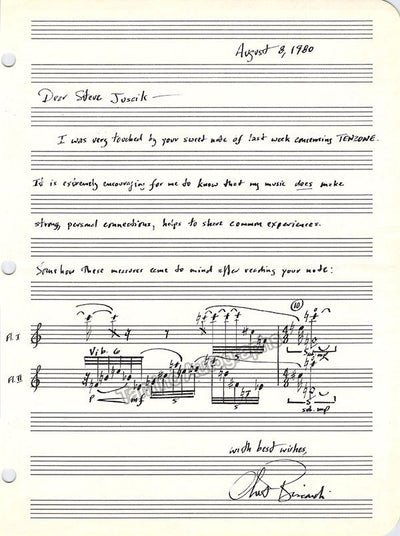 August 8, 1980
Dear Steve Juscik —
I was very touched by your sweet note of last week concerning TENZONE.
It is extremely encouraging for me to know that my music does make
strong, personal connections, helps to share common experiences.
Somehow these measures came to mind after reading your note:
10
Fl. I
sub. mp
Vib. G
Fl. II
p mf 5 5 5
sub. mp
with best wishes,